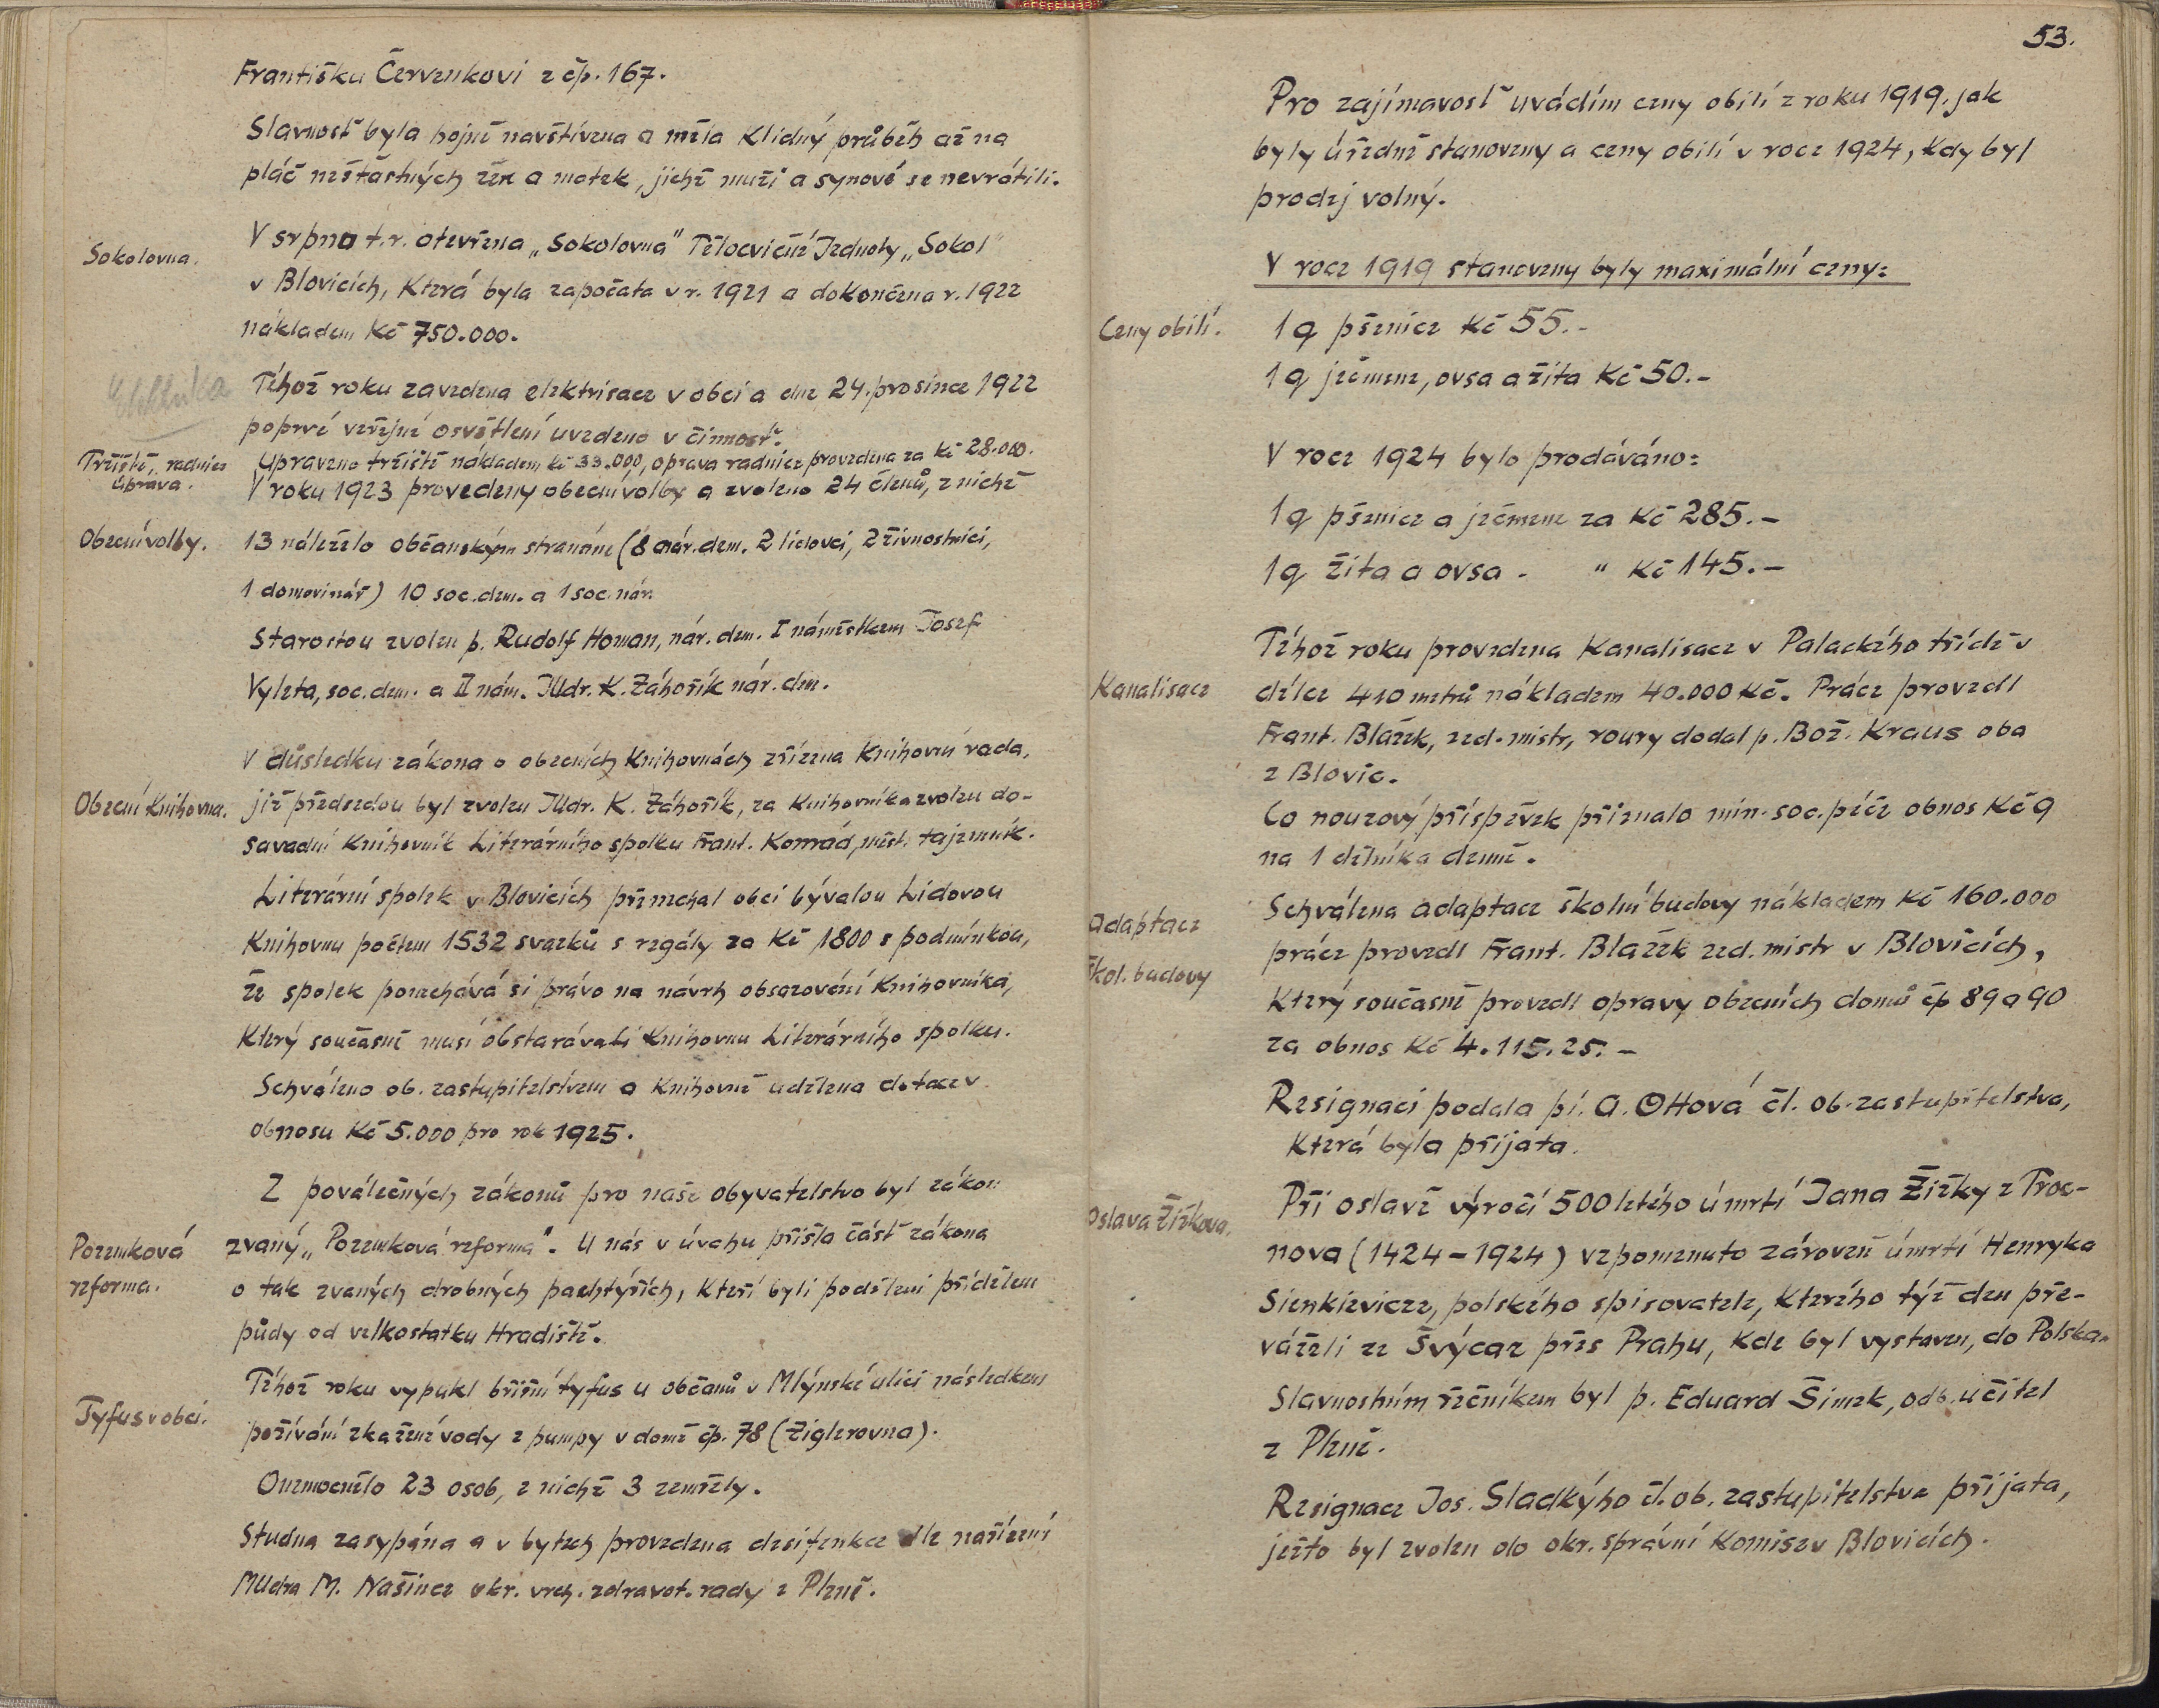 Františku Červenkovi z čp. 167.
Slavnost byla hojně navštívena a měla klidný průběh až na
pláč nešťastných žen a matek, jichž muži a synové se nevrátili.
Sokolovna.
V srpnu t.r. otevřena „Sokolovna" Tělocvičné Jednoty „Sokol"
v Blovicích, která byla započata v r. 1921 a dokončena r. 1922
nákladem Kč 750.000.
Elektrika
Téhož roku zavedena elektrisace v obci a dne 24. prosince 1922
poprvé veřejné osvětlení uvedeno v činnost.
Tržiště, radnice
úprava.
Upraveno tržiště nákladem kč 33.000, oprava radnice provedena za kč 28.000.
V roku 1923 provedeny obecní volby a zvoleno 24 členů, z nichž
Obecní volby.
13 náleželo občanským stranám (8 nár. dem. 2 lidovci, 2 živnostníci,
1 domovinář) 10 soc. dem. a 1 soc. nár.
Starostou zvolen p. Rudolf Homan, nár. dem. I náměstkem Josef
Vyleta, soc. dem. a II nám. JUdr. K. Záhořík nár. dem.
V důsledku zákona o obecních knihovnách zřízena knihovní rada,
Obecní knihovna.
jíž předsedou byl zvolen JUdr. K. Záhořík, za knihovníka zvolen do-
savadní knihovník Literárního spolku Frant. Konrád, měst. tajemník.
Literární spolek v Blovicích přenechal obci bývalou Lidovou
knihovnu počtem 1532 svazků s regály za Kč 1800 s podmínkou,
že spolek ponechává si právo na návrh obsazování knihovníka,
který současně musí obstarávati knihovnu Literárního spolku.
Schváleno ob. zastupitelstvem a knihovně udělena dotace v
obnosu Kč 5.000 pro rok 1925.
Z poválečných zákonů pro naše obyvatelstvo byl zákon
Pozemková
reforma.
zvaný „Pozemková reforma". U nás v úvahu přišla část zákona
o tak zvaných drobných pachtýřích, kteří byli poděleni přídělem
půdy od velkostatku Hradiště.
Téhož roku vypukl břišní tyfus u občanů v Mlýnské ulici následkem
Tyfus v obci.
požívání zkažené vody z pumpy v domě čp. 78 (Ziglerovna).
Onemocnělo 23 osob, z nichž 3 zemřely.
Studna zasypána a v bytech provedena desifenkce dle nařízení
MUdra M. Našince okr. vrch. zdravot. rady z Plzně.
53.
Pro zajímavost uvádím ceny obilí z roku 1919. jak
byly úředně stanoveny a ceny obilí v roce 1924, kdy byl
prodej volný.
V roce 1919 stanoveny byly maximální ceny:
Ceny obilí.
1 q pšenice Kč 55.-
1 q ječmene, ovsa a žita Kč 50.-
V roce 1924 bylo prodáváno:
1 q pšenice a ječmene za Kč 285.-
1 q žita a ovsa. " Kč 145.-
Téhož roku provedena kanalisace v Palackého třídě v
Kanalisace
délce 410 metrů nákladem 40.000 Kč. Práce provedl
Frant. Blažek, zed. mistr, roury dodal p. Bož. Kraus oba
z Blovic.
Co nouzový příspěvek přiznalo min. soc. péče obnos Kč 9
na 1 dělníka denně.
Adaptace
škol. budovy
Schválena adaptace školní budovy nákladem Kč 160.000
práce provedl Frant. Blažek zed. mistr v Blovicích,
který současně provedl opravy obecních domů čp 89 a 90
za obnos Kč 4.115.25.-
Resignaci podala pí. A. Ottová čl. ob. zastupitelstva,
která byla přijata.
Oslava Žižkova.
Při oslavě výročí 500 letého úmrtí Jana Žižky z Troc-
nova (1424-1924) vzpomenuto zároveň úmrtí Henryka
Sienkievicze, polského spisovatele, kterého týž den pře-
váželi ze Švýcar přes Prahu, kde byl vystaven, do Polska.
Slavnostním řečníkem byl p. Eduard Šimek, odb. učitel
z Plzně.
Resignace Jos. Sladkýho čl. ob. zastupitelstva přijata,
ježto byl zvolen do okr. správní komise v Blovicích.